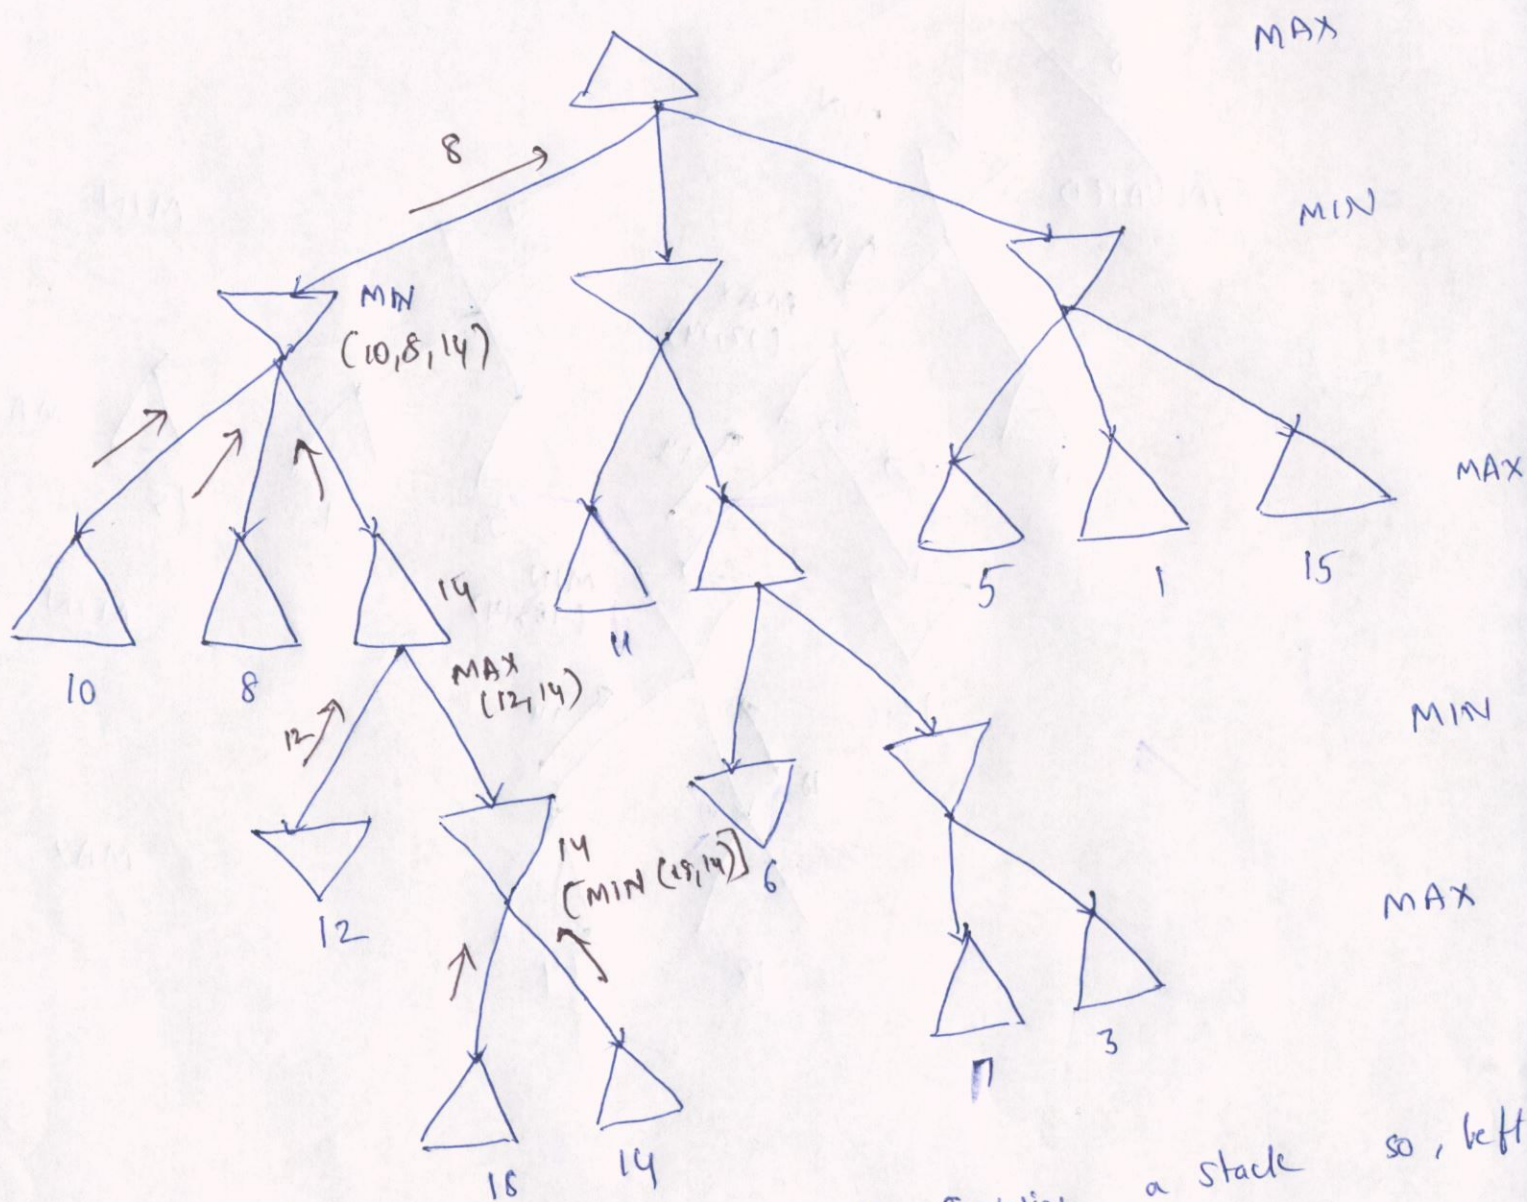 MAX
8
MIN
MIN
(10,8,14)
MAX
14
5
1
15
11
10
8
MAX
(12,14)
12
MIN
14
[MIN (18,14)]
6
12
MAX
3
18
14
a stack so, left